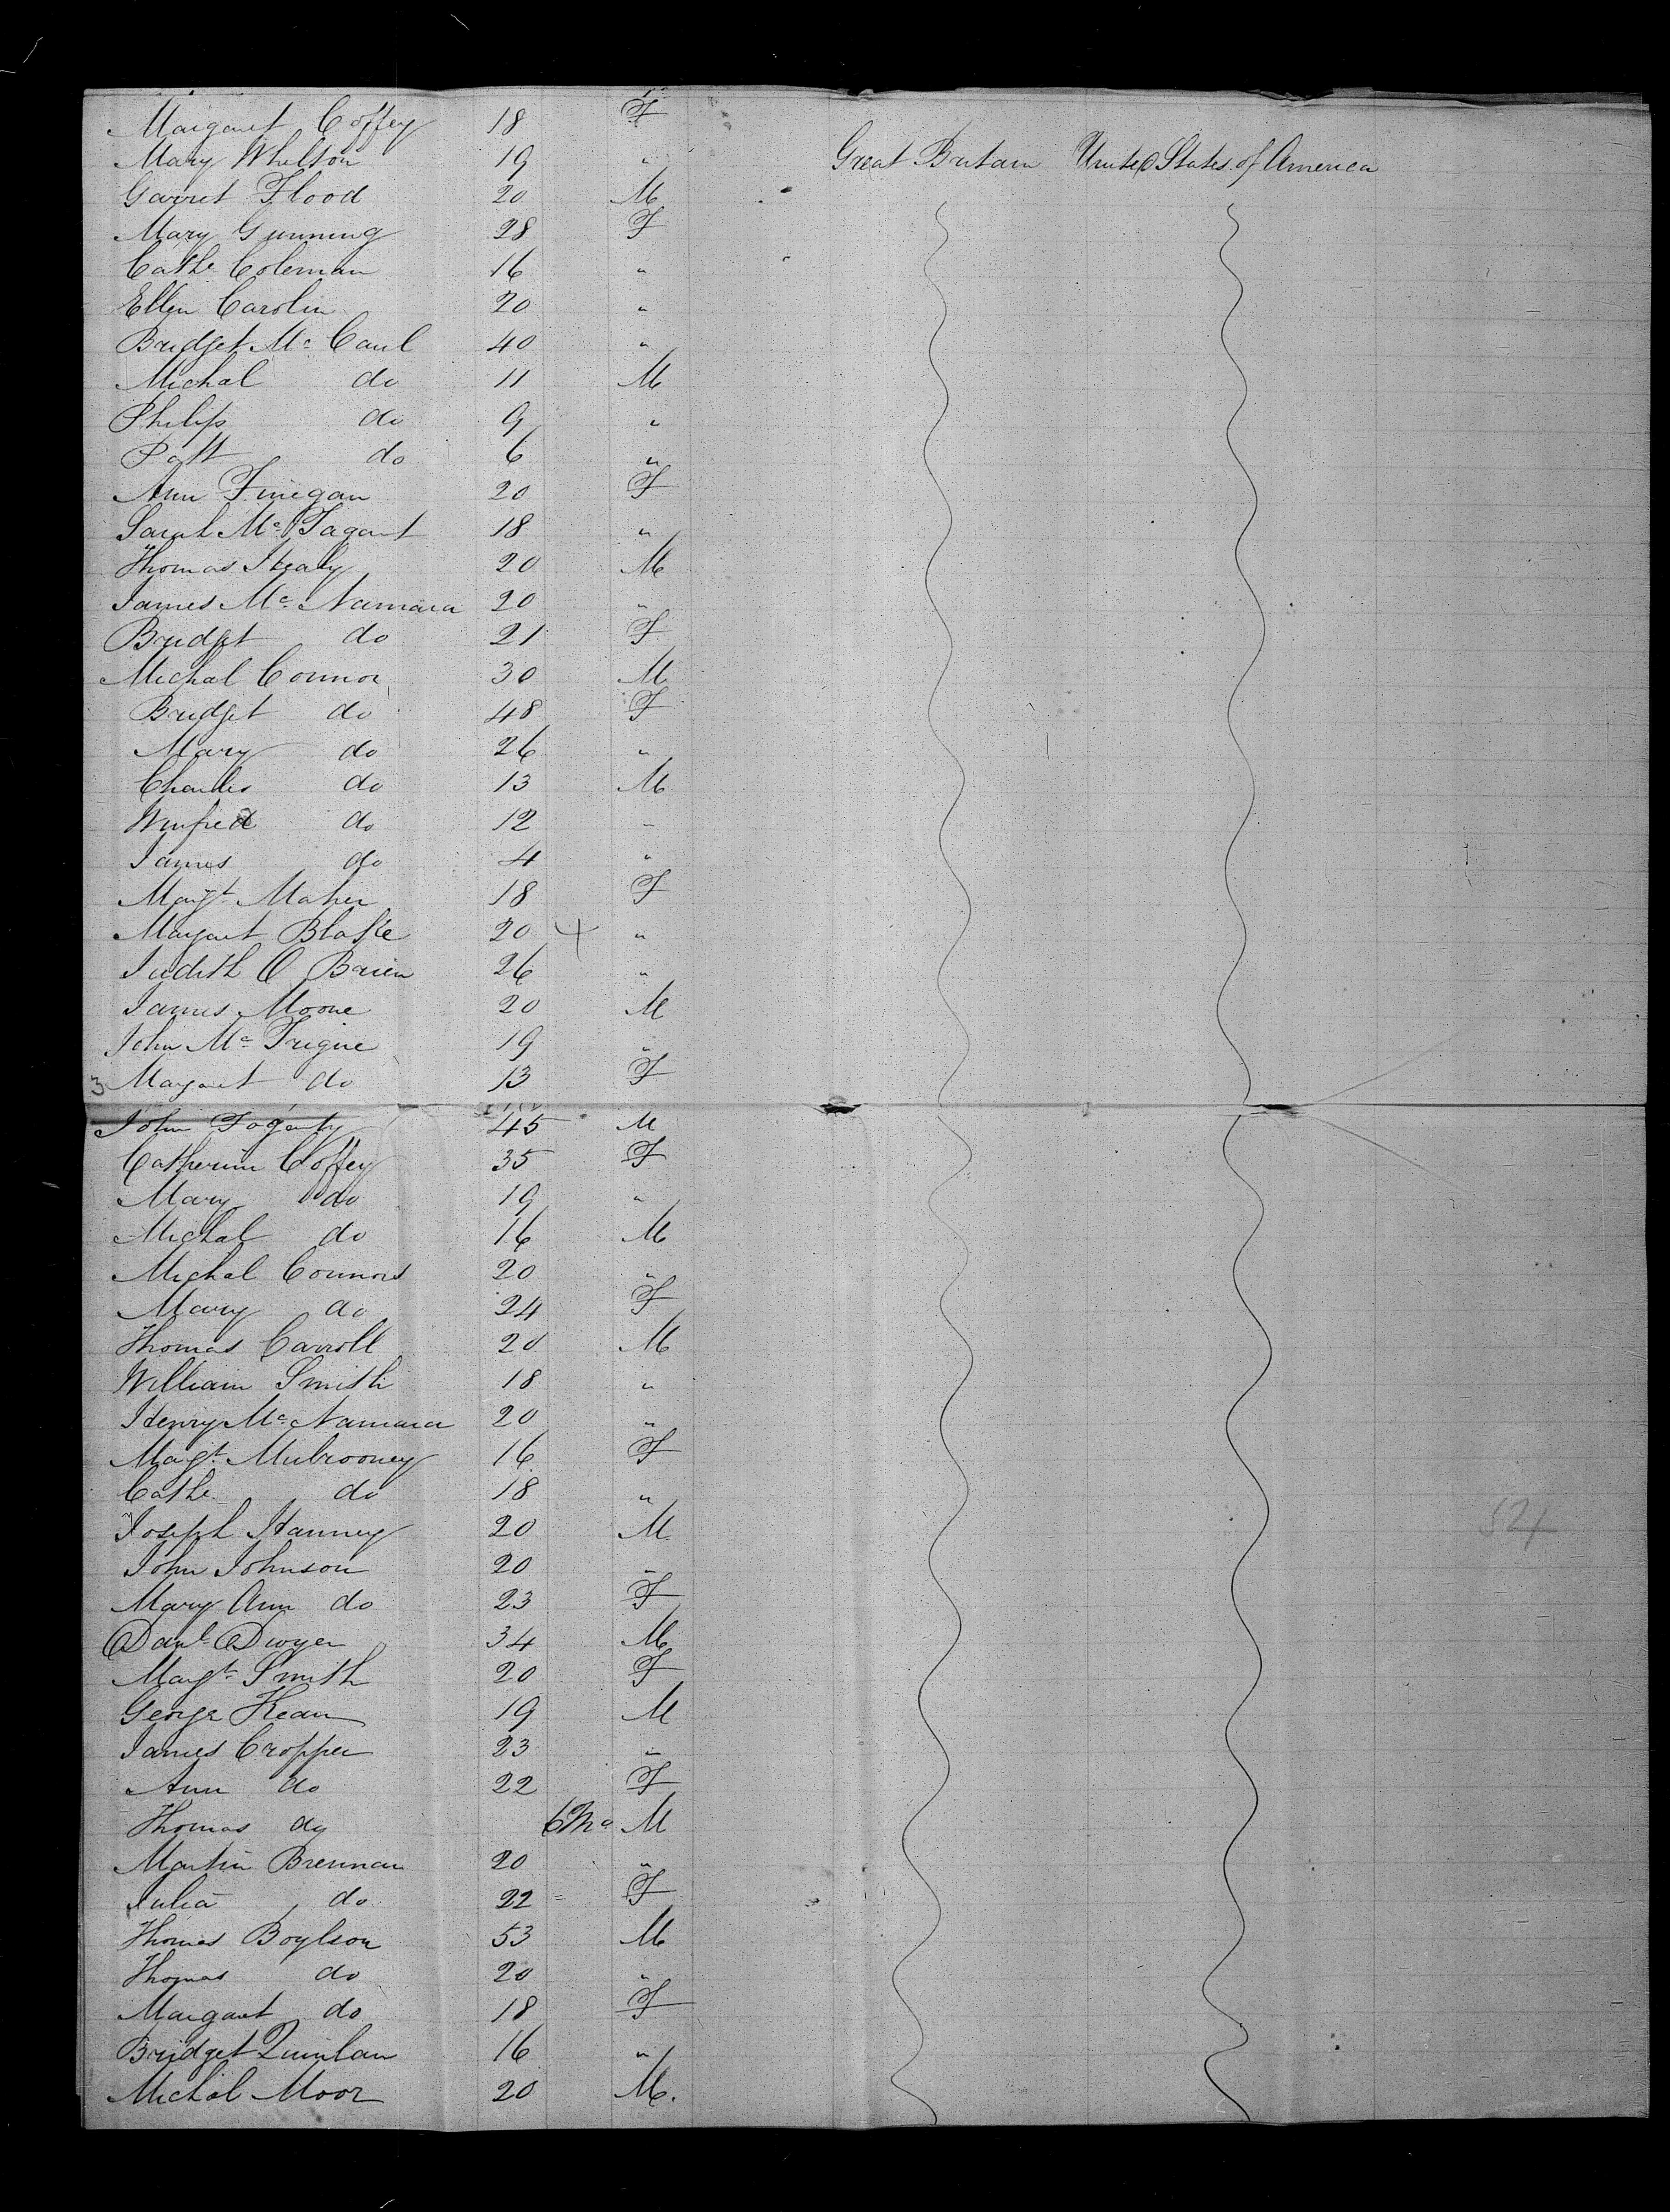 Margaret Coffey 18 F
Mary Whelton 19 " Great Britain United States of America
Garret Flood 20 M
Mary Gunning 28 F
Cathe Coleman 16 "
Ellen Carolin 20 "
Bridget Mc Caul 40 "
Michal do 11 M
Philip do 9 "
Patt do 6 "
Ann Finegan 20 F
Sarah Mc Tagart 18 "
Thomas Healy 20 M
James Mc Namara 20 "
Bridget do 21 F
Michal Connor 30 M
Bridget do 48 F
Mary do 26 "
Charles do 13 M
Winfred do 12 "
James do 4 "
Margt Maher 18 F
Margaret Blake 20 + "
Judith O Brien 26 "
James Moore 20 M
John Mc Trigue 19 "
3 Margaret do 13 F
John Fogarty 45 M
Catherine Coffey 35 F
Mary do 19 "
Michal do 16 M
Michal Connors 20 "
Mary do 24 F
Thomas Carroll 20 M
William Smith 18 "
Henry Mc Namara 20 "
Margt Mulrooney 16 F
Cathe do 18 "
Joseph Hanney 20 M
John Johnson 20 "
Mary Ann do 23 F
Danl Dwyer 34 M
Margt Smith 20 F
George Kean 19 M
James Cropper 23 "
Ann do 22 F
Thomas do 6 Mo M
Martin Brennan 20 "
Julia do 22 F
Thomas Boylson 53 M
Thomas do 20 "
Margaret do 18 F
Bridget Quinlan 16 "
Michal Moor 20 M.